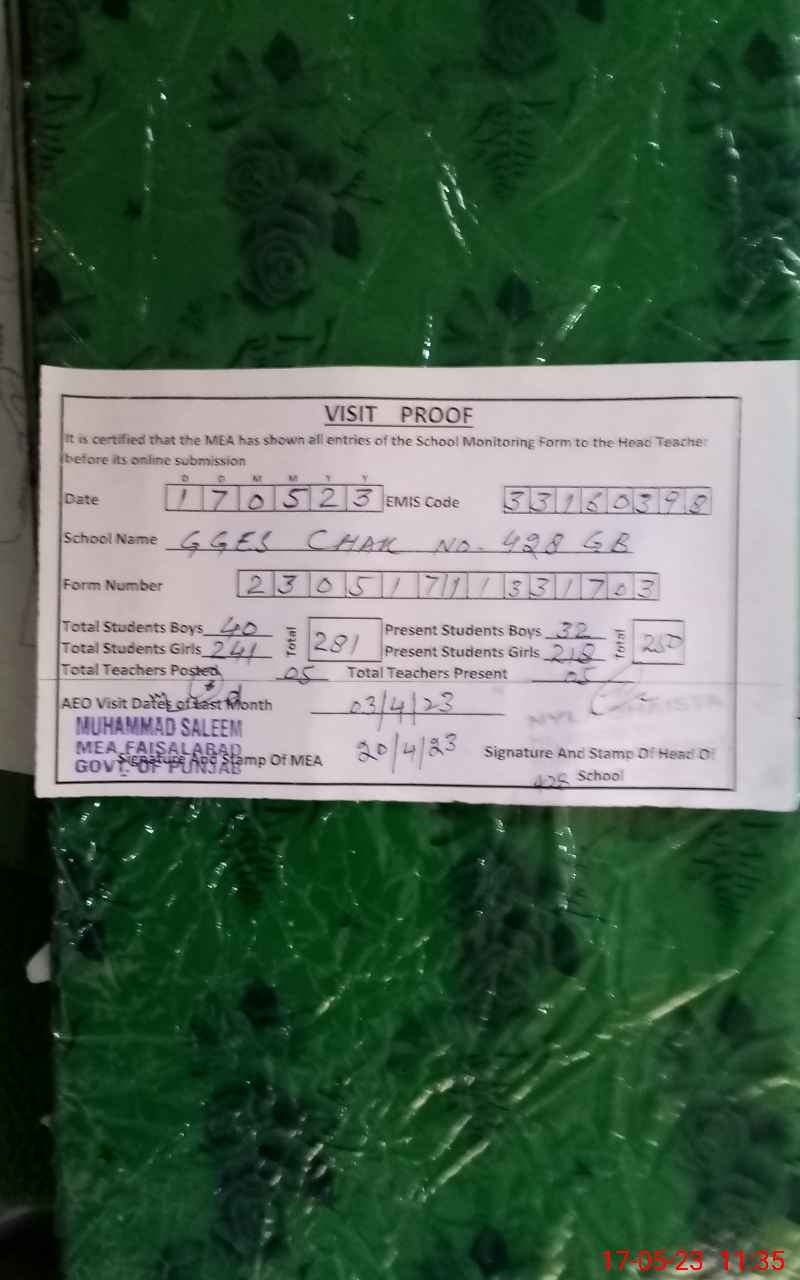 VISIT PROOF
It is certified that the MEA has shown all entries of the School Monitoring Form to the Head Teacher
before its online submission
D D M M Y Y
Date 170523 EMIS Code 33160398
School Name GGES CHAK NO. 428 GB
Form Number 23051711331703
Total Students Boys 40 Total 281 Present Students Boys 32 Total 250
Total Students Girls 241 Present Students Girls 218
Total Teachers Posted 05 Total Teachers Present 05
AEO Visit Dates of Last Month 03/4/23
MUHAMMAD SALEEM
MEA FAISALABAD
GOVT. OF PUNJAB
Signature And Stamp Of MEA 20/4/23 Signature And Stamp Of Head Of
428 School
17-05-23 11:35